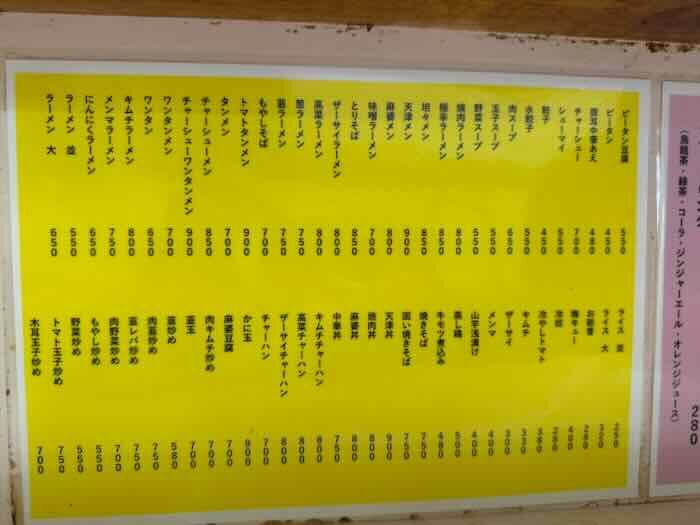 ピータン豆腐 550
ピータン 450
豚耳中華あえ 480
チャーシュー 700
シューマイ 550
餃子 450
水餃子 550
肉スープ 650
玉子スープ 550
野菜スープ 550
焼肉ラーメン 800
極辛ラーメン 850
坦々メン 850
天津メン 900
麻婆メン 800
味噌ラーメン 700
とりそば 850
ザーサイラーメン 800
高菜ラーメン 800
葱ラーメン 750
韮ラーメン 750
もやしそば 700
トマトタンメン 900
タンメン 700
チャーシューメン 850
チャーシューワンタンメン 900
ワンタンメン 700
ワンタン 650
キムチラーメン 800
メンマラーメン 750
にんにくラーメン 650
ラーメン 並 550
ラーメン 大 650
ライス 並 250
ライス 大 320
お新香 280
梅キュー 400
冷奴 280
冷やしトマト 380
キムチ 330
ザーサイ 300
メンマ 400
山芋浅漬け 400
蒸し鶏 500
牛モツ煮込み 480
焼きそば 750
固い焼きそば 750
天津丼 900
焼肉丼 800
麻婆丼 800
中華丼 750
キムチチャーハン 800
高菜チャーハン 800
ザーサイチャーハン 800
チャーハン 700
かに玉 900
麻婆豆腐 700
肉キムチ炒め 700
韮玉 700
韮炒め 580
肉韮炒め 750
韮レバ炒め 750
肉野菜炒め 700
もやし炒め 550
野菜炒め 550
トマト玉子炒め 750
木耳玉子炒め 700
280
（烏龍茶・緑茶・コーラ・ジンジャーエール・オレンジジュース）